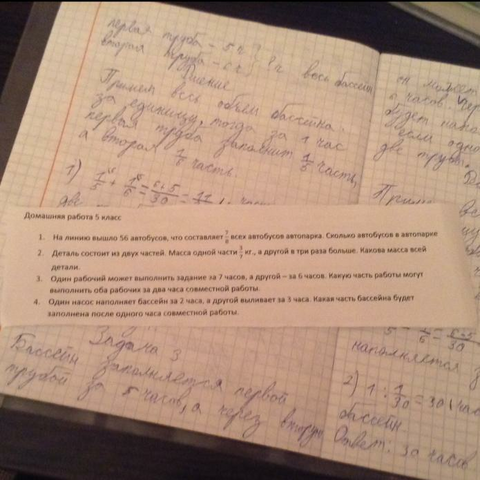 первая труба = 5 ч ?
вторая труба = 6 ч ? ч весь бассейн
Решение
Примем весь объем бассейна
за единицу, тогда за 1 час
первая труба заполнит 1/5 часть,
а вторая 1/6 часть.
1) 1/5 + 1/6 = 6+5/30 = 11/
Домашняя работа 5 класс
1. На линию вышло 56 автобусов, что составляет 7/8 всех автобусов автопарка. Сколько автобусов в автопарке
2. Деталь состоит из двух частей. Масса одной части кг., а другой в три раза больше. Какова масса всей
детали.
3. Один рабочий может выполнить задание за 7 часов, а другой – за 6 часов. Какую часть работы могут
выполнить оба рабочих за два часа совместной работы.
4. Один насос наполняет бассейн за 2 часа, а другой выливает за 3 часа. Какая часть бассейна будет
заполнена после одного часа совместной работы.
Задача 3
Бассейн заполняется первой
трубой за 5 часов, а через вторую
он может
6 часов.
будет
если
две трубы.
наполняется з
2) 1 : 1/30 = 30
бассейн
Ответ: 30 часов